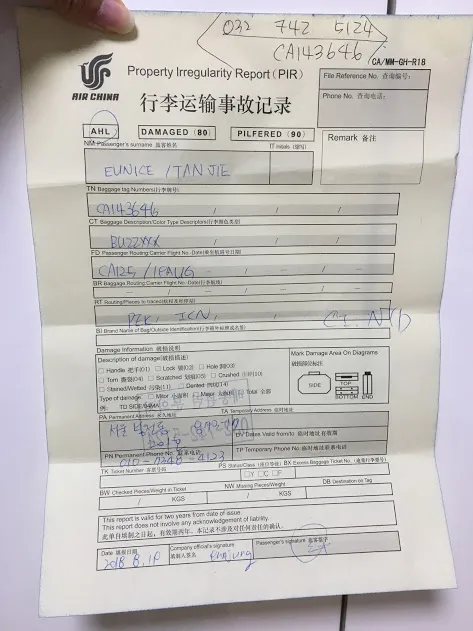 032 742 5124
CA143646
CA/MM-GH-R18
AIR CHINA
Property Irregularity Report (PIR)
行李运输事故记录
File Reference No. 查询编号:
Phone No. 查询电话:
AHL DAMAGED (80) PILFERED (90)
Remark 备注
NM Passenger's surname 旅客姓名 IT Initials (缩写)
EUNICE / TANJIE
TN Baggage tag Numbers(行李牌号)
CA143646 / / /
CT Baggage Description/Color Type Descriptors(行李颜色类别)
BU22XXX / / /
FD Passenger Routing/Carrier Flight No.-Date
CA125 /
BR Baggage Routing/Carrier Flight No.-Date
RT Routing/Places to traced
PEK, ICN,
BI Brand Name of Bag/Outside Identification
Damage Information 破损说明
Description of damage(破损描述)
Mark Damage Area On Diagrams
破损部位标注
□ Handle 把手(01) □ Lock 锁(02) □ Hole 洞(03)
□ Torn 撕裂(04) □ Scratched 划痕(05) □ Crushed
□ Stained/Wetted 污点(11) □ Dented 凹陷(14)
SIDE TOP BOTTOM END
Type of damage: □ Minor □ Major □ Total 全部
例: TD SIDE
PA Permanent Address 永久地址 TA Temporary Address 临时地址
서울
DV Dates Valid from/to 临时地址有效期
PN Permanent Phone No. 联系电话 TP Temporary Phone No. 临时地址联系电话
TK Ticket Number 客票号码 PS Status/Class (座位等级) BX Excess Baggage Ticket No.
□Y □C □F
BW Checked Pieces/Weight in Ticket NW Missing Pieces/Weight DB Destination on Tag
/ KGS / KGS
This report is valid for two years from date of issue.
This report does not involve any acknowledgement of liability.
此单自填制之日起,有效期两年。本记录不涉及对任何责任的确认。
Date 填报日期 Company official's signature Passenger's signature 旅客签字
填制人签名
2018. 8. 19